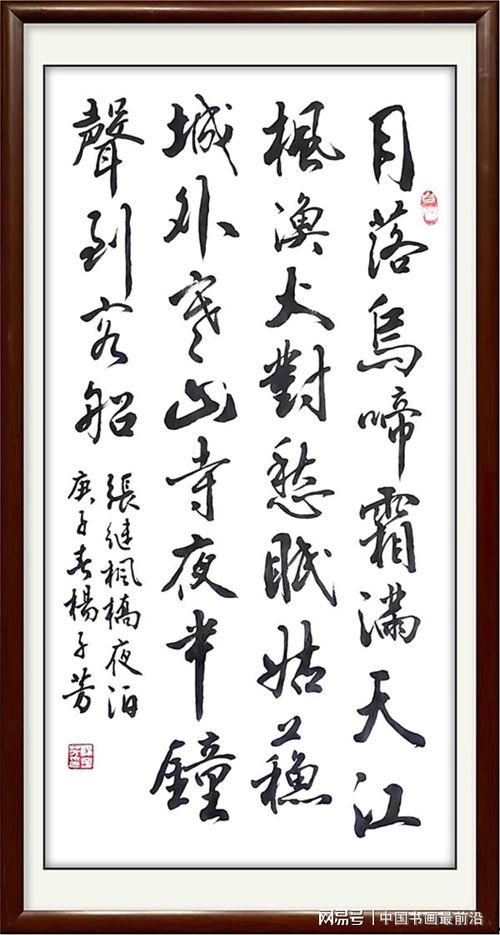 月落烏啼霜滿天江
楓漁火對愁眠姑蘇
城外寒山寺夜半鐘
聲到客船
張継楓橋夜泊
庚子春楊子芳
网易号 | 中国书画最前沿